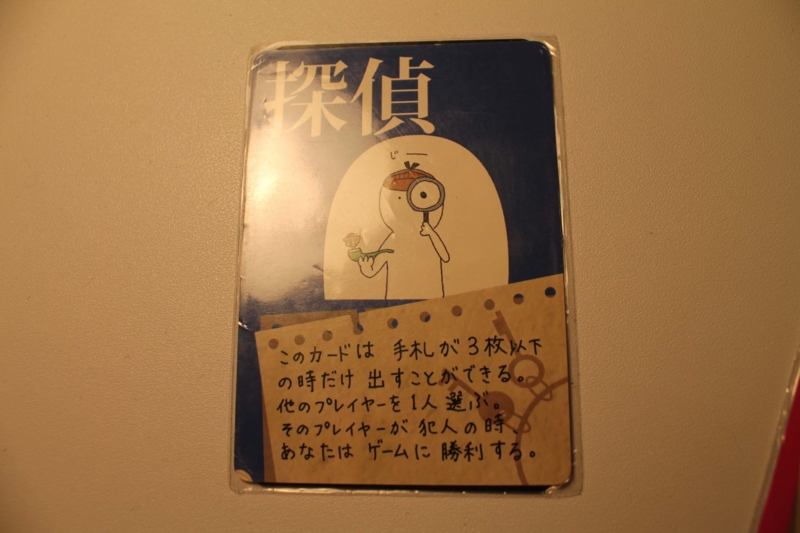 探偵
じー
このカードは 手札が3枚以下
の時だけ 出すことができる。
他のプレイヤーを1人 選ぶ。
そのプレイヤーが 犯人の時、
あなたは ゲームに 勝利する。